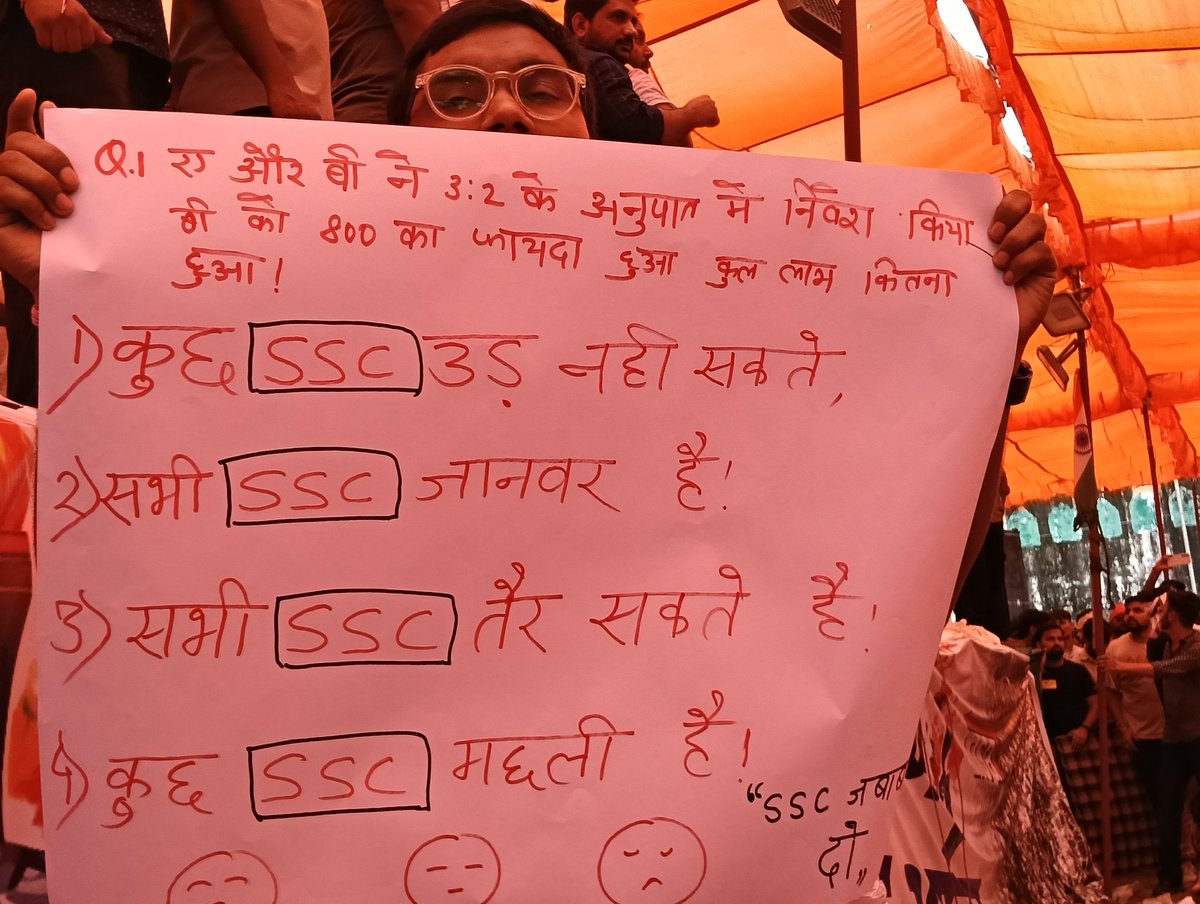 Q.1 ए और बी ने 3:2 के अनुपात में निवेश किया
बी को 800 का फायदा हुआ कुल लाभ कितना
हुआ!
1) कुछ SSC उड़ नही सकते,
2) सभी SSC जानवर है!
3) सभी SSC तैर सकते है!
4) कुछ SSC मछली है!
"SSC जबाब
दो,,